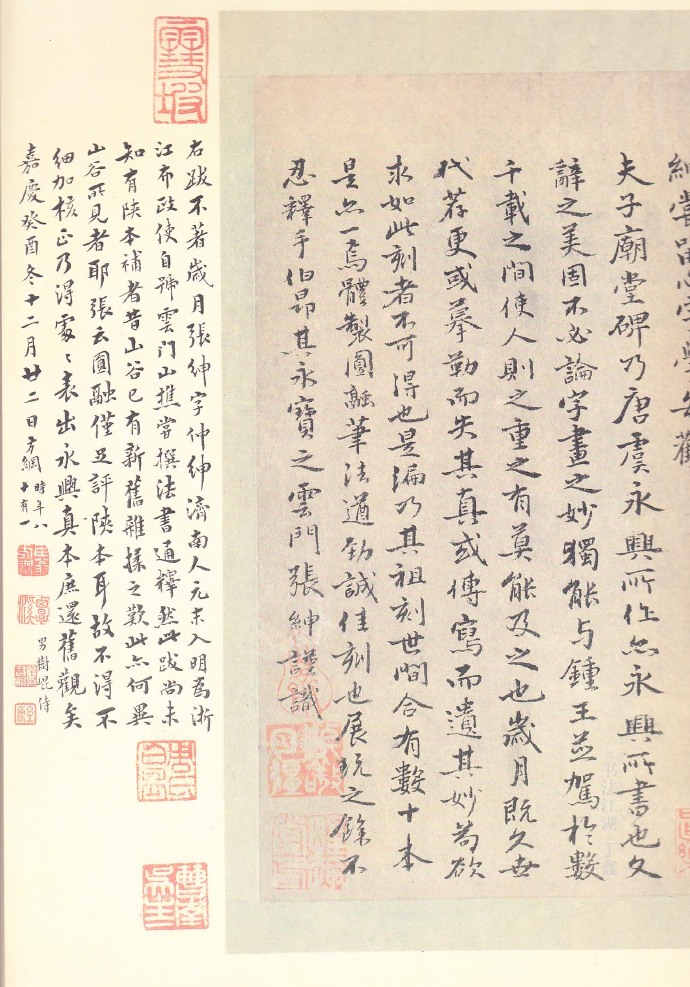 夫子廟堂碑乃唐虞永興所作亦永興所書也文
辭之美固不必論字畫之妙獨能与鍾王並駕於數
千載之間使人則之重之有莫能及之也歲月既久世
代荐更或摹勒而失其真或傳寫而遺其妙苟欲
求如此刻者不可得也是編乃其祖刻世間合有數十本
是亦一焉體製圓融筆法遒勁誠佳刻也展玩之餘不
忍釋手伯昂其永寶之雲門張紳謹識
右跋不著歲月張紳字仲紳濟南人元末入明為浙
江布政使自號雲門山樵嘗撰法書通釋然此跋尚未
知有陝本補者昔山谷已有新舊雜揉之歎此亦何異
山谷所見者耶張云圓融僅足評陝本耳故不得不
細加核正乃得處〻表出永興真本庶還舊觀矣
嘉慶癸酉冬十二月廿二日方綱時年八
十有一
男樹崐侍
书法江湖